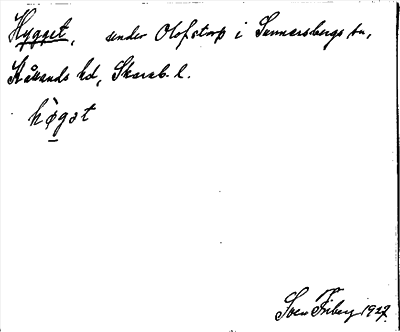 Hygget, under Olofstorp i Sunnersbergs sn,
Kållands hd, Skarab. l.
hø̀gət
Sven Friberg 1927.